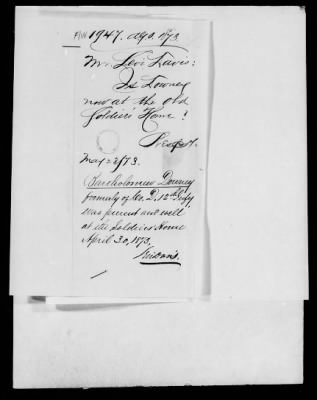 1947. ago. 1873.
Mr. Levi Davis:
Is Downey
now at the old
Soldiers' Home?
May 28/73.
Bartholomew Downey
formerly of Co. D, 12th Infy
was present and well
at the Soldiers Home
April 30, 1873.